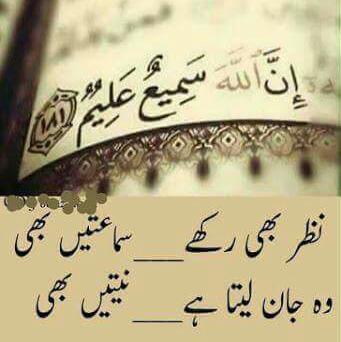 إِنَّ ٱللَّهَ سَمِيعٌ عَلِيمٌ ١٨١
نظر بھی رکھے ___ سماعتیں بھی
وہ جان لیتا ہے ___ نیتیں بھی